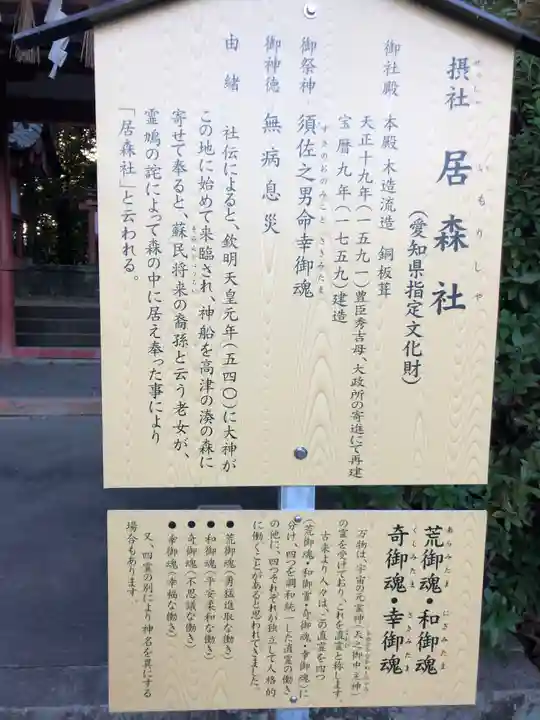 せっしゃ いもりしゃ
摂社 居森社
(愛知県指定文化財)
御社殿 本殿 木造流造 銅板葺
天正十九年(一五九一)豊臣秀吉母、大政所の寄進にて再建
宝暦九年(一七五九)建造
すさのおのみこと さきみたま
御祭神 須佐之男命幸御魂
御神徳 無病息災
由緒 社伝によると、欽明天皇元年(五四〇)に大神が
この地に始めて来臨され、神船を高津の湊の森に
寄せて奉ると、蘇民将来の裔孫と云う老女が、
そみんしょうらい
霊鳩の託によって森の中に居え奉った事により
「居森社」と云われる。
あらみたま にぎみたま
荒御魂・和御魂
くしみたま さきみたま
奇御魂・幸御魂
万物は、宇宙の元霊神(天之御中主神)
の霊を受けており、これを直霊と称します。
古来より人々は、この直霊を四つ
(荒御魂・和御霊・奇御魂・幸御魂)に
分け、四つを調和統一した直霊の働き
の他に、四つそれぞれが独立して人格的
に働くことがあると思われてきました。
●荒御魂(勇猛進取な働き)
●和御魂(平安柔和な働き)
●奇御魂(不思議な働き)
●幸御魂(幸福な働き)
又、四霊の別により神名を異にする
場合もあります。